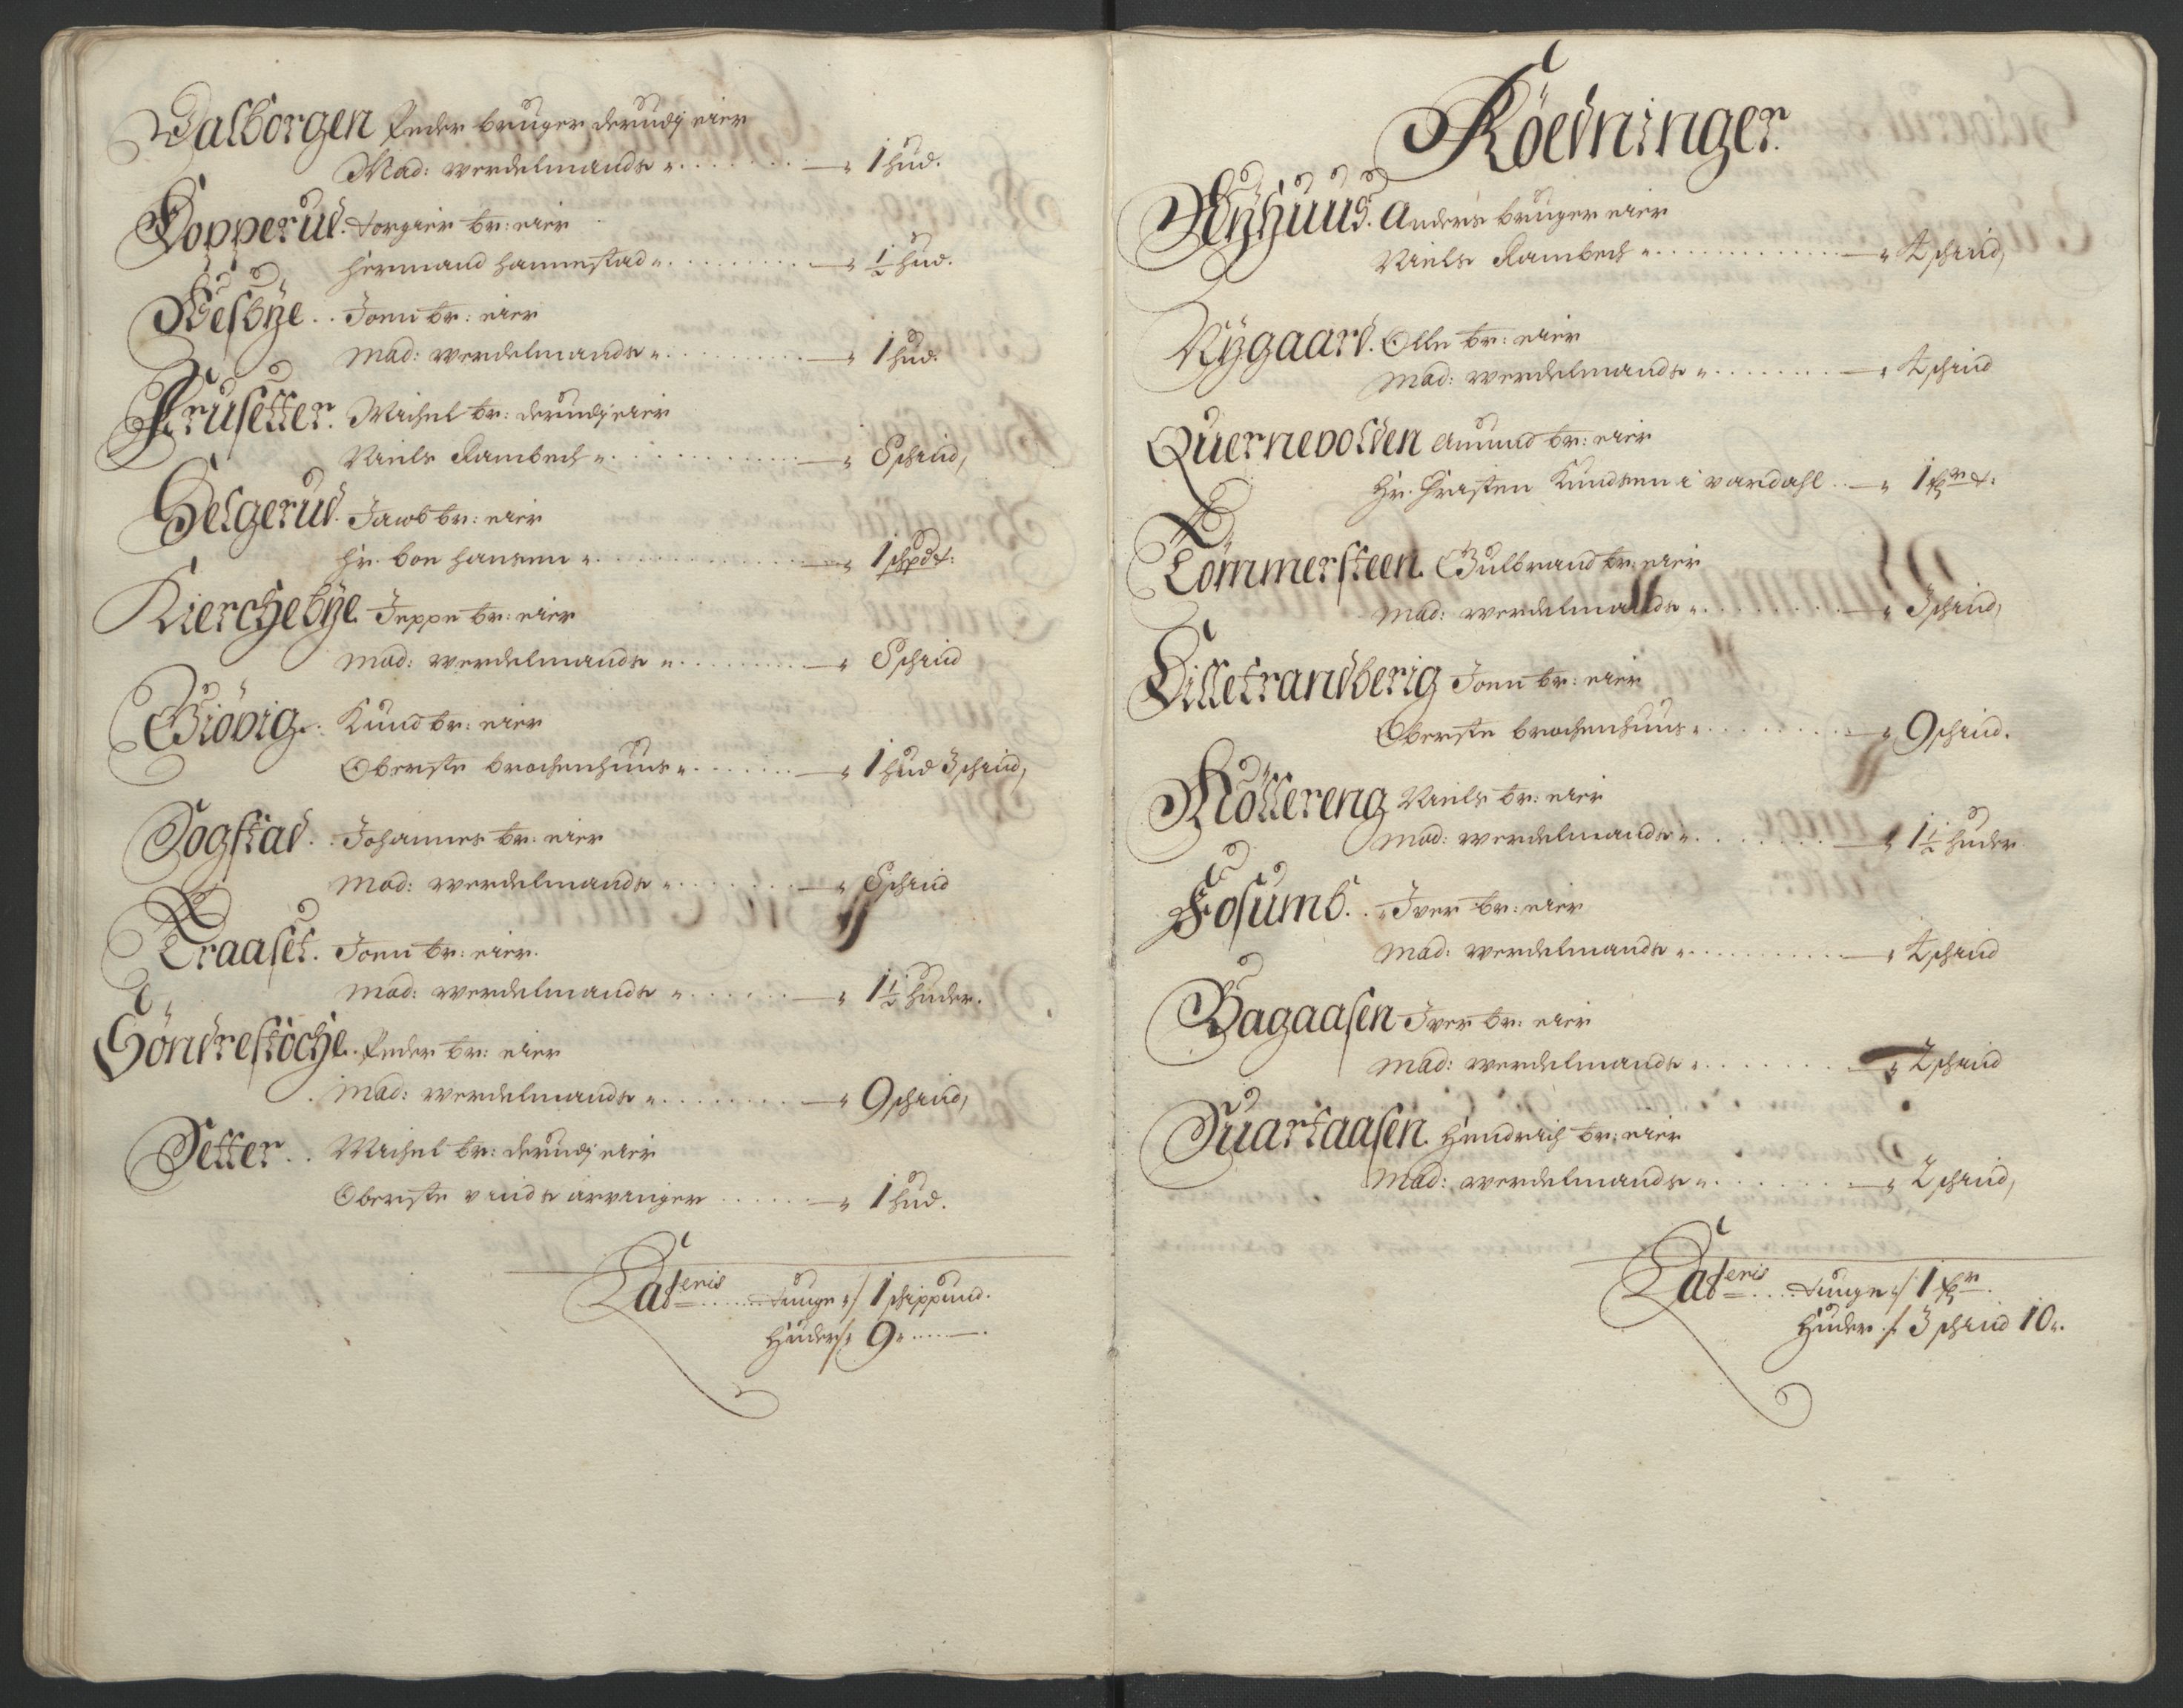 Dalborgen Peder bruger derudj eier
Mad: werdelmands „ . . . . . . — „ 1 hud.
Kopperud. torgier br: eier
Hermand Hannestad „ . . . . . . — „ ½ hud.
Wesbÿe . . Joen br: eier
Mad: werdelmands „ . . . . . . — „ 1 hud.
Frusetter. Michel br: derudj eier
Niels Rambech „ . . . . . . — „ 8 schind,
Helgerud. Jacob br: eier
Hr. boe Hansen „ . . . . . . — „ 1 schpdt:
Kierchebÿe Jeppe br: eier
Mad: werdelmands „ . . . . . . — „ 8 schind
Giövig . . Knud br: eier
Oberste brochenhuus „ . . . . . . — „ 1 hud 3 schind,
Sogstad. . Johannes br: eier
Mad: werdelmands „ . . . . . . — „ 8 schind
Traaset. Joen br: eier.
Mad: werdelmands „ . . . . . . — „ 1½ huder.
Söndrestöche. Peder br: eier
Mad: werdelmands „ . . . . . . — „ 9 schind,
Setter . . Michel br: derudj eier
Oberste vinds arvinger . . . . . . — „ 1 hud.
Lateris . . . . . tunge :/ 1 schippund.
Huder :/: 9 „ . . . . —.
Röedninger.
Nÿhuus. Anders bruger eier
Niels Rambech „ . . . . . . — „ 4 schind,
Nÿgaard. Olle br: eier
Mad: werdelmands „ . . . . . . — „ 4 schind
Quernevolden Amund br: eier
Hr. Christen Knudsen i vardahl . . — „ 1
Tömmersteen. Gulbrand br: eier
Mad: werdelmands „ . . . . . . — „ 3 schind,
Lilletrandberig Joen br: eier
Oberste brochenhuus „ . . . . . . — „ 9 schind.
Möllereng Niels br: eier
Mad: werdelmands „ . . . . . . — „ 1½ huder
Fosumb. . Iver br: eier
Mad: werdelmands „ . . . . . . — „ 4 schind
Bagaasen Iver br: eier
Mad: werdelmands „ . . . . . . — „ 2 schind
Suartaasen. Hendrich br: eier
Mad: werdelmands „ . . . . . . — „ 2 schind,
Lateris . . . . tunge :/ 1
Huder :/: 3 schind 10 „.